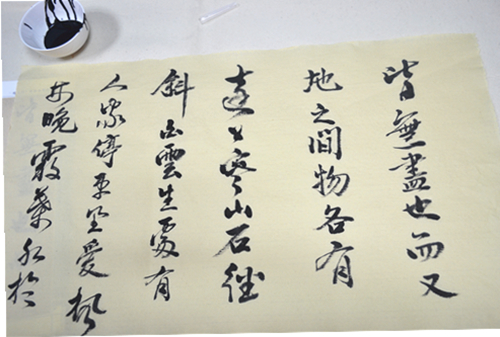 皆無盡也而又
地之間物各有
遠上寒山石徑
斜白雲生處有
人家停車坐愛楓
林晚霜葉紅於